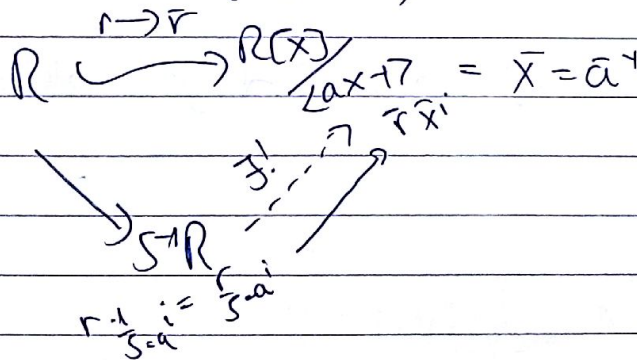 r → r̄
R → R[x]/<ax-1> = x̄ = ā⁻¹
r̄ x̄ⁱ
∃!
S⁻¹R
r · 1/s=aⁱ = r/s=aⁱ